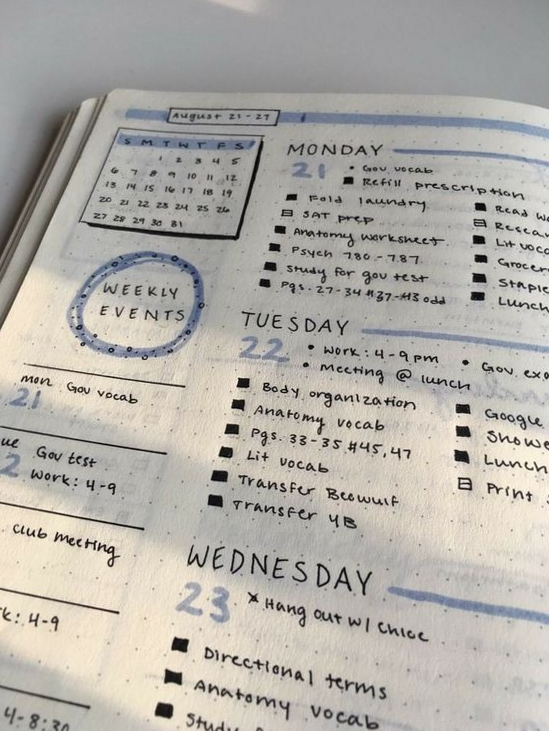 August 21-27
S M T W T F S
1 2 3 4 5
6 7 8 9 10 11 12
13 14 15 16 17 18 19
20 21 22 23 24 25 26
27 28 29 30 31
WEEKLY
EVENTS
mon Gov vocab
21
Gov test
2 Work: 4-9
club meeting
k: 4-9
4-8:30
MONDAY
21 • Gov vocab
Refill prescription
Fold laundry
SAT prep
Anatomy worksheet
Psych 780.-787.
Study for gov test
Pgs. 27-34 #37-43 odd
Read
Lit
Lunch
TUESDAY
22 • Work: 4-9pm • Gov
• Meeting @ lunch
Body organization
Anatomy vocab
Pgs. 33-35 #45,47
Lit vocab
Transfer Beowulf
Transfer 4B
Google
Lunch
Print
WEDNESDAY
23 × Hang out w/ Chloe
Directional terms
Anatomy vocab
Study